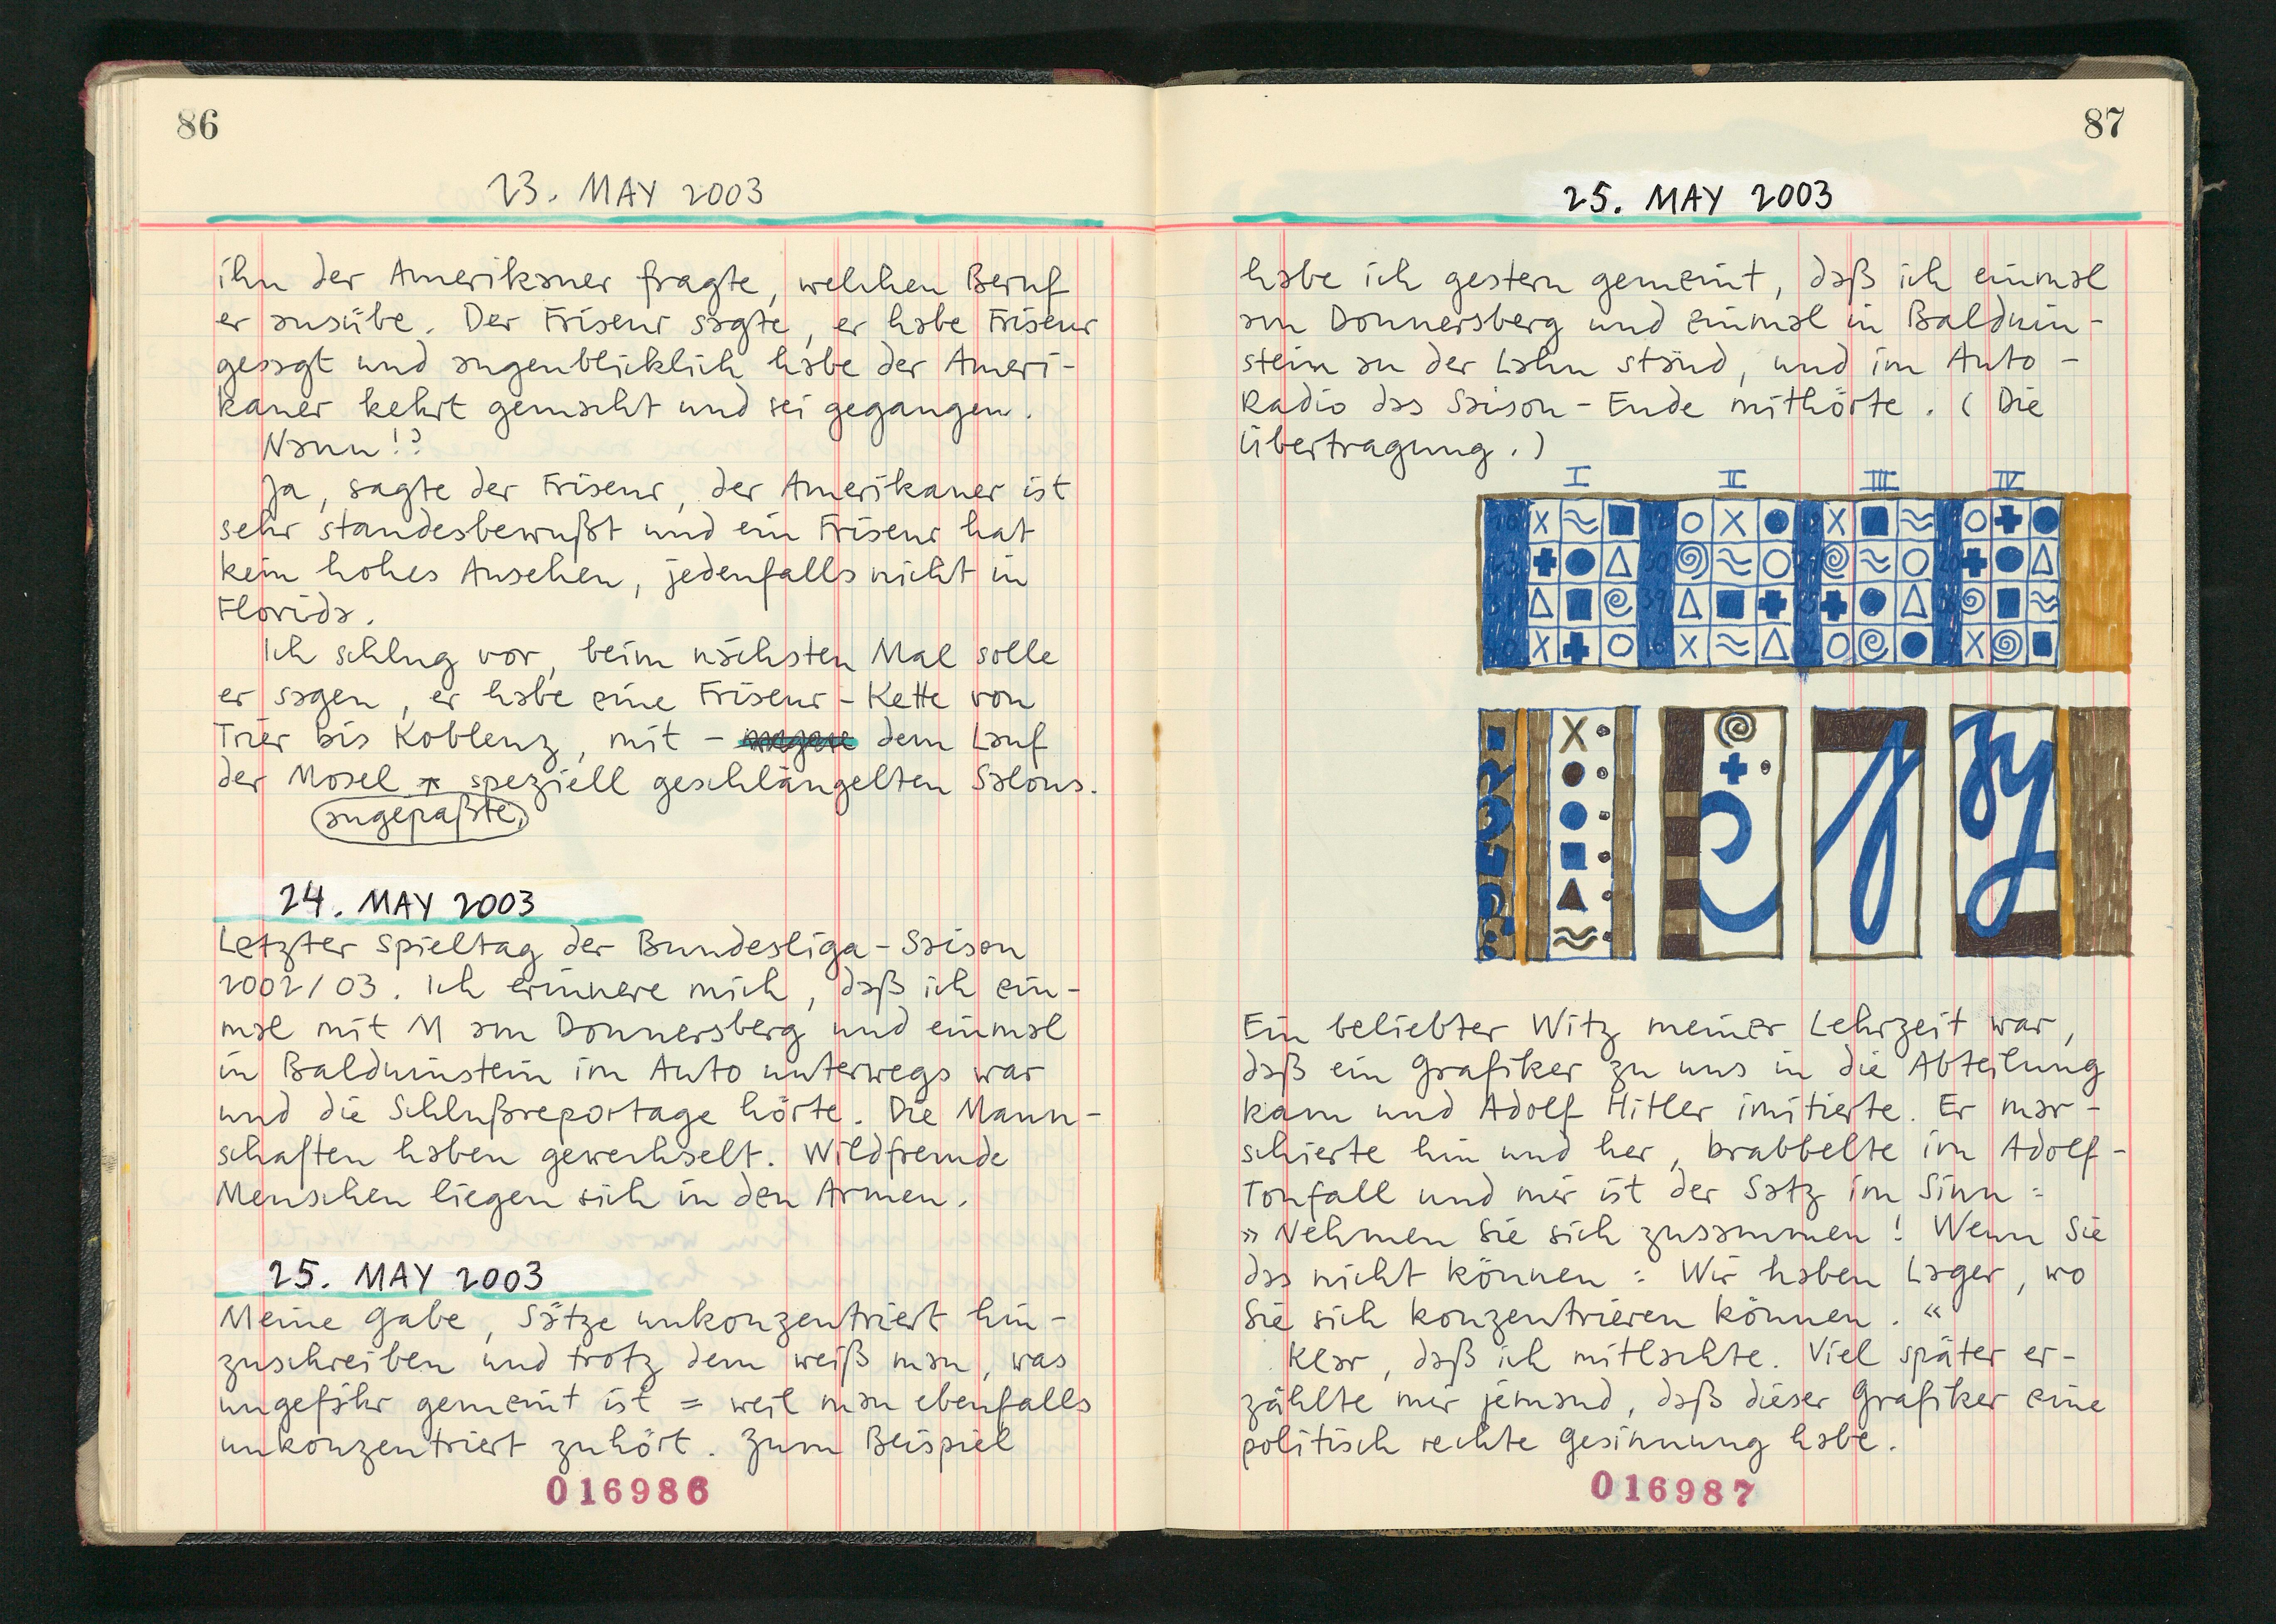 86
23. MAY 2003
ihn der Amerikaner fragte, welchen Beruf
er ausübe. Der Friseur sagte, er habe Friseur
gesagt und augenblicklich habe der Ameri-
kaner kehrt gemacht und sei gegangen.
Nanu!?
Ja, sagte der Friseur, der Amerikaner ist
sehr standesbewußt und ein Friseur hat
kein hohes Ansehen, jedenfalls nicht in
Florida.
Ich schlug vor, beim nächsten Mal solle
er sagen, er habe eine Friseur-Kette von
Trier bis Koblenz, mit - dem Lauf
der Mosel * speziell geschlängelten Salons.
angepaßte,
24. MAY 2003
Letzter Spieltag der Bundesliga-Saison
2002/03. Ich erinnere mich, daß ich ein-
mal mit M am Donnersberg und einmal
in Balduinstein im Auto unterwegs war
und die Schlußreportage hörte. Die Mann-
schaften haben gewechselt. Wildfremde
Menschen liegen sich in den Armen.
25. MAY 2003
Meine Gabe, Sätze unkonzentriert hin-
zuschreiben und trotz dem weiß man, was
ungefähr gemeint ist = weil man ebenfalls
unkonzentriert zuhört. Zum Beispiel
016986
87
25. MAY 2003
habe ich gestern gemeint, daß ich einmal
am Donnersberg und einmal in Balduin-
stein an der Lahn stand, und im Auto-
Radio das Saison-Ende mithörte. (Die
Übertragung.)
I II III IV
Ein beliebter Witz meiner Lehrzeit war,
daß ein Grafiker zu uns in die Abteilung
kam und Adolf Hitler imitierte. Er mar-
schierte hin und her, brabbelte im Adolf-
Tonfall und mir ist der Satz im Sinn:
»Nehmen Sie sich zusammen! Wenn Sie
das nicht können: Wir haben Lager, wo
Sie sich konzentrieren können.«
Klar, daß ich mitlachte. Viel später er-
zählte mir jemand, daß dieser Grafiker eine
politisch rechte Gesinnung habe.
016987